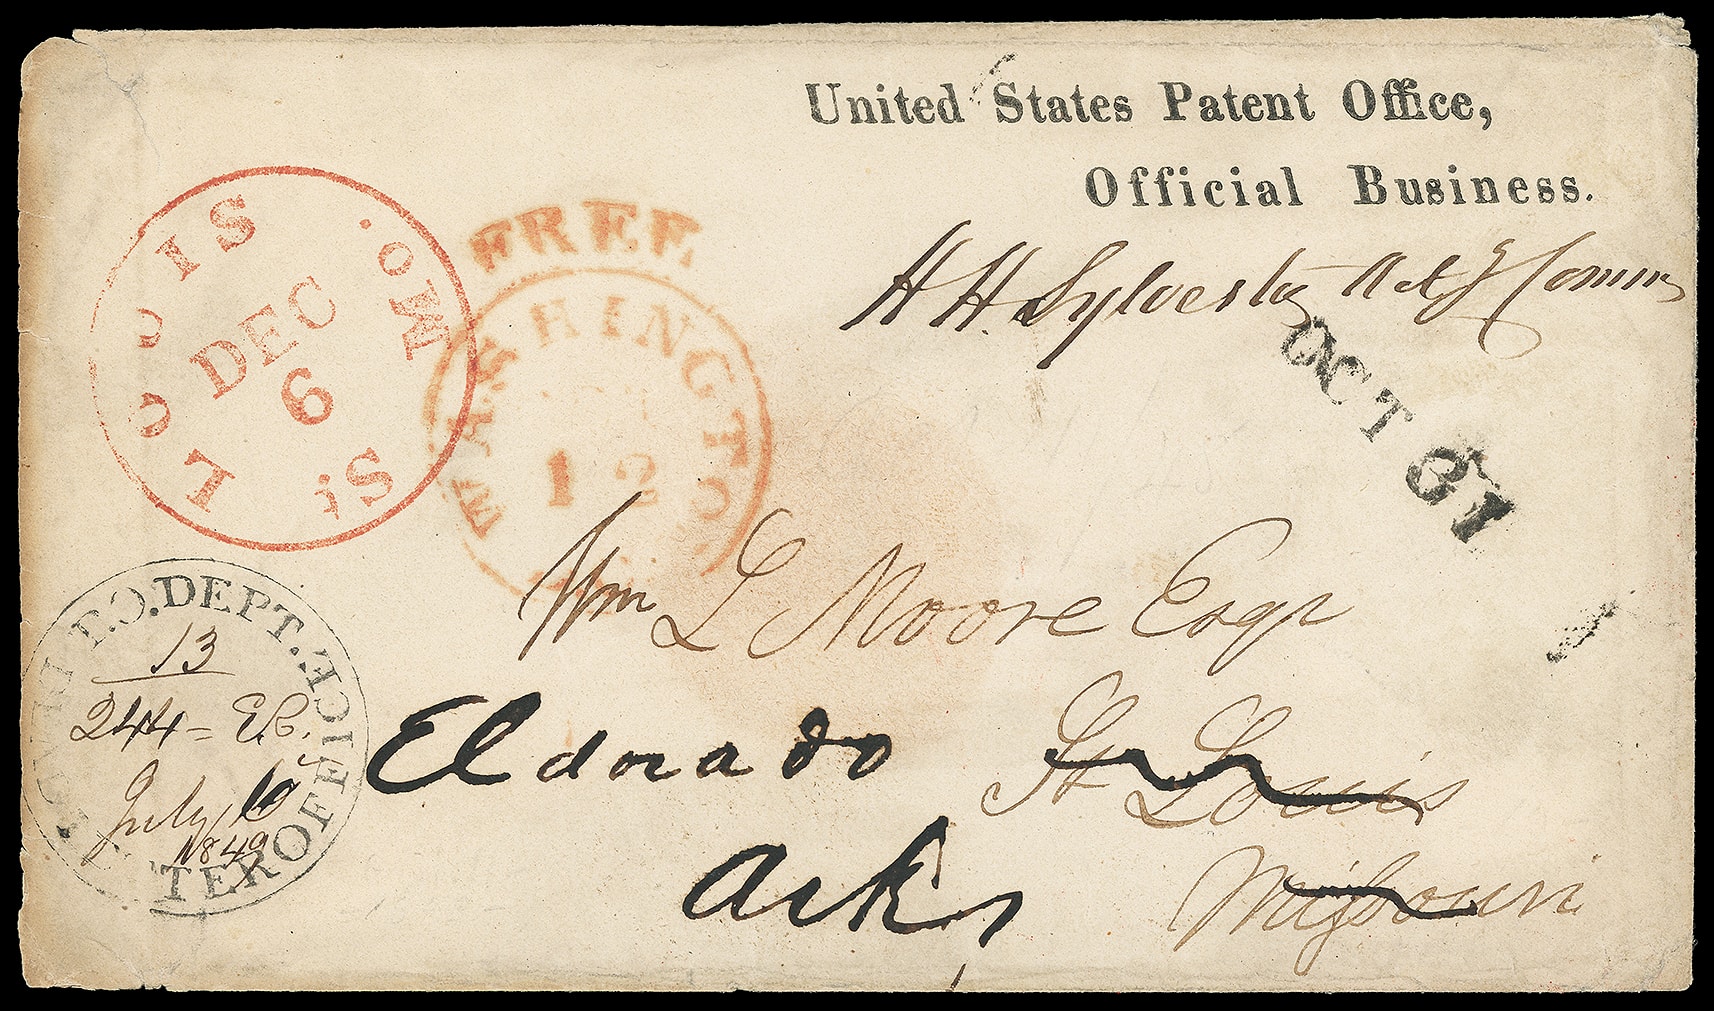 United States Patent Office,
Official Business.
H H. Sylvester Actg Comm
ST. LOUIS Mo.
DEC
6
FREE
WASHINGTON
12
OCT 31
Wm L Moore Esqr
St Louis
Missouri
Eldorado
Arks
P.O. DEPT.
TER OFFICE
13
244 =
July 10
1849